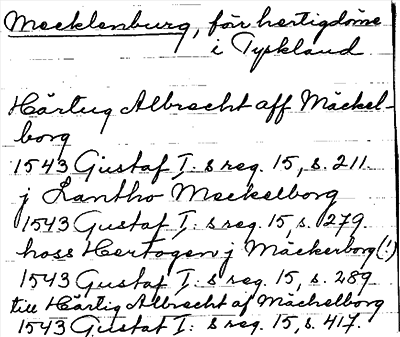 Mecklenburg, förr hertigdöme
i Tyskland
Härtug Albrecht aff Mäckel-
borg
1543 Gustaf I: s reg. 15, s. 211.
j Lantho Meckelborg
1543 Gustaf I: s reg. 15, s. 279
hoss Hertogen j Mäckerborg (!)
1543 Gustaf I: s reg. 15, s. 289
till Härtig Albrecht af Mächelborg
1543 Gustaf I: s reg. 15, s. 417.